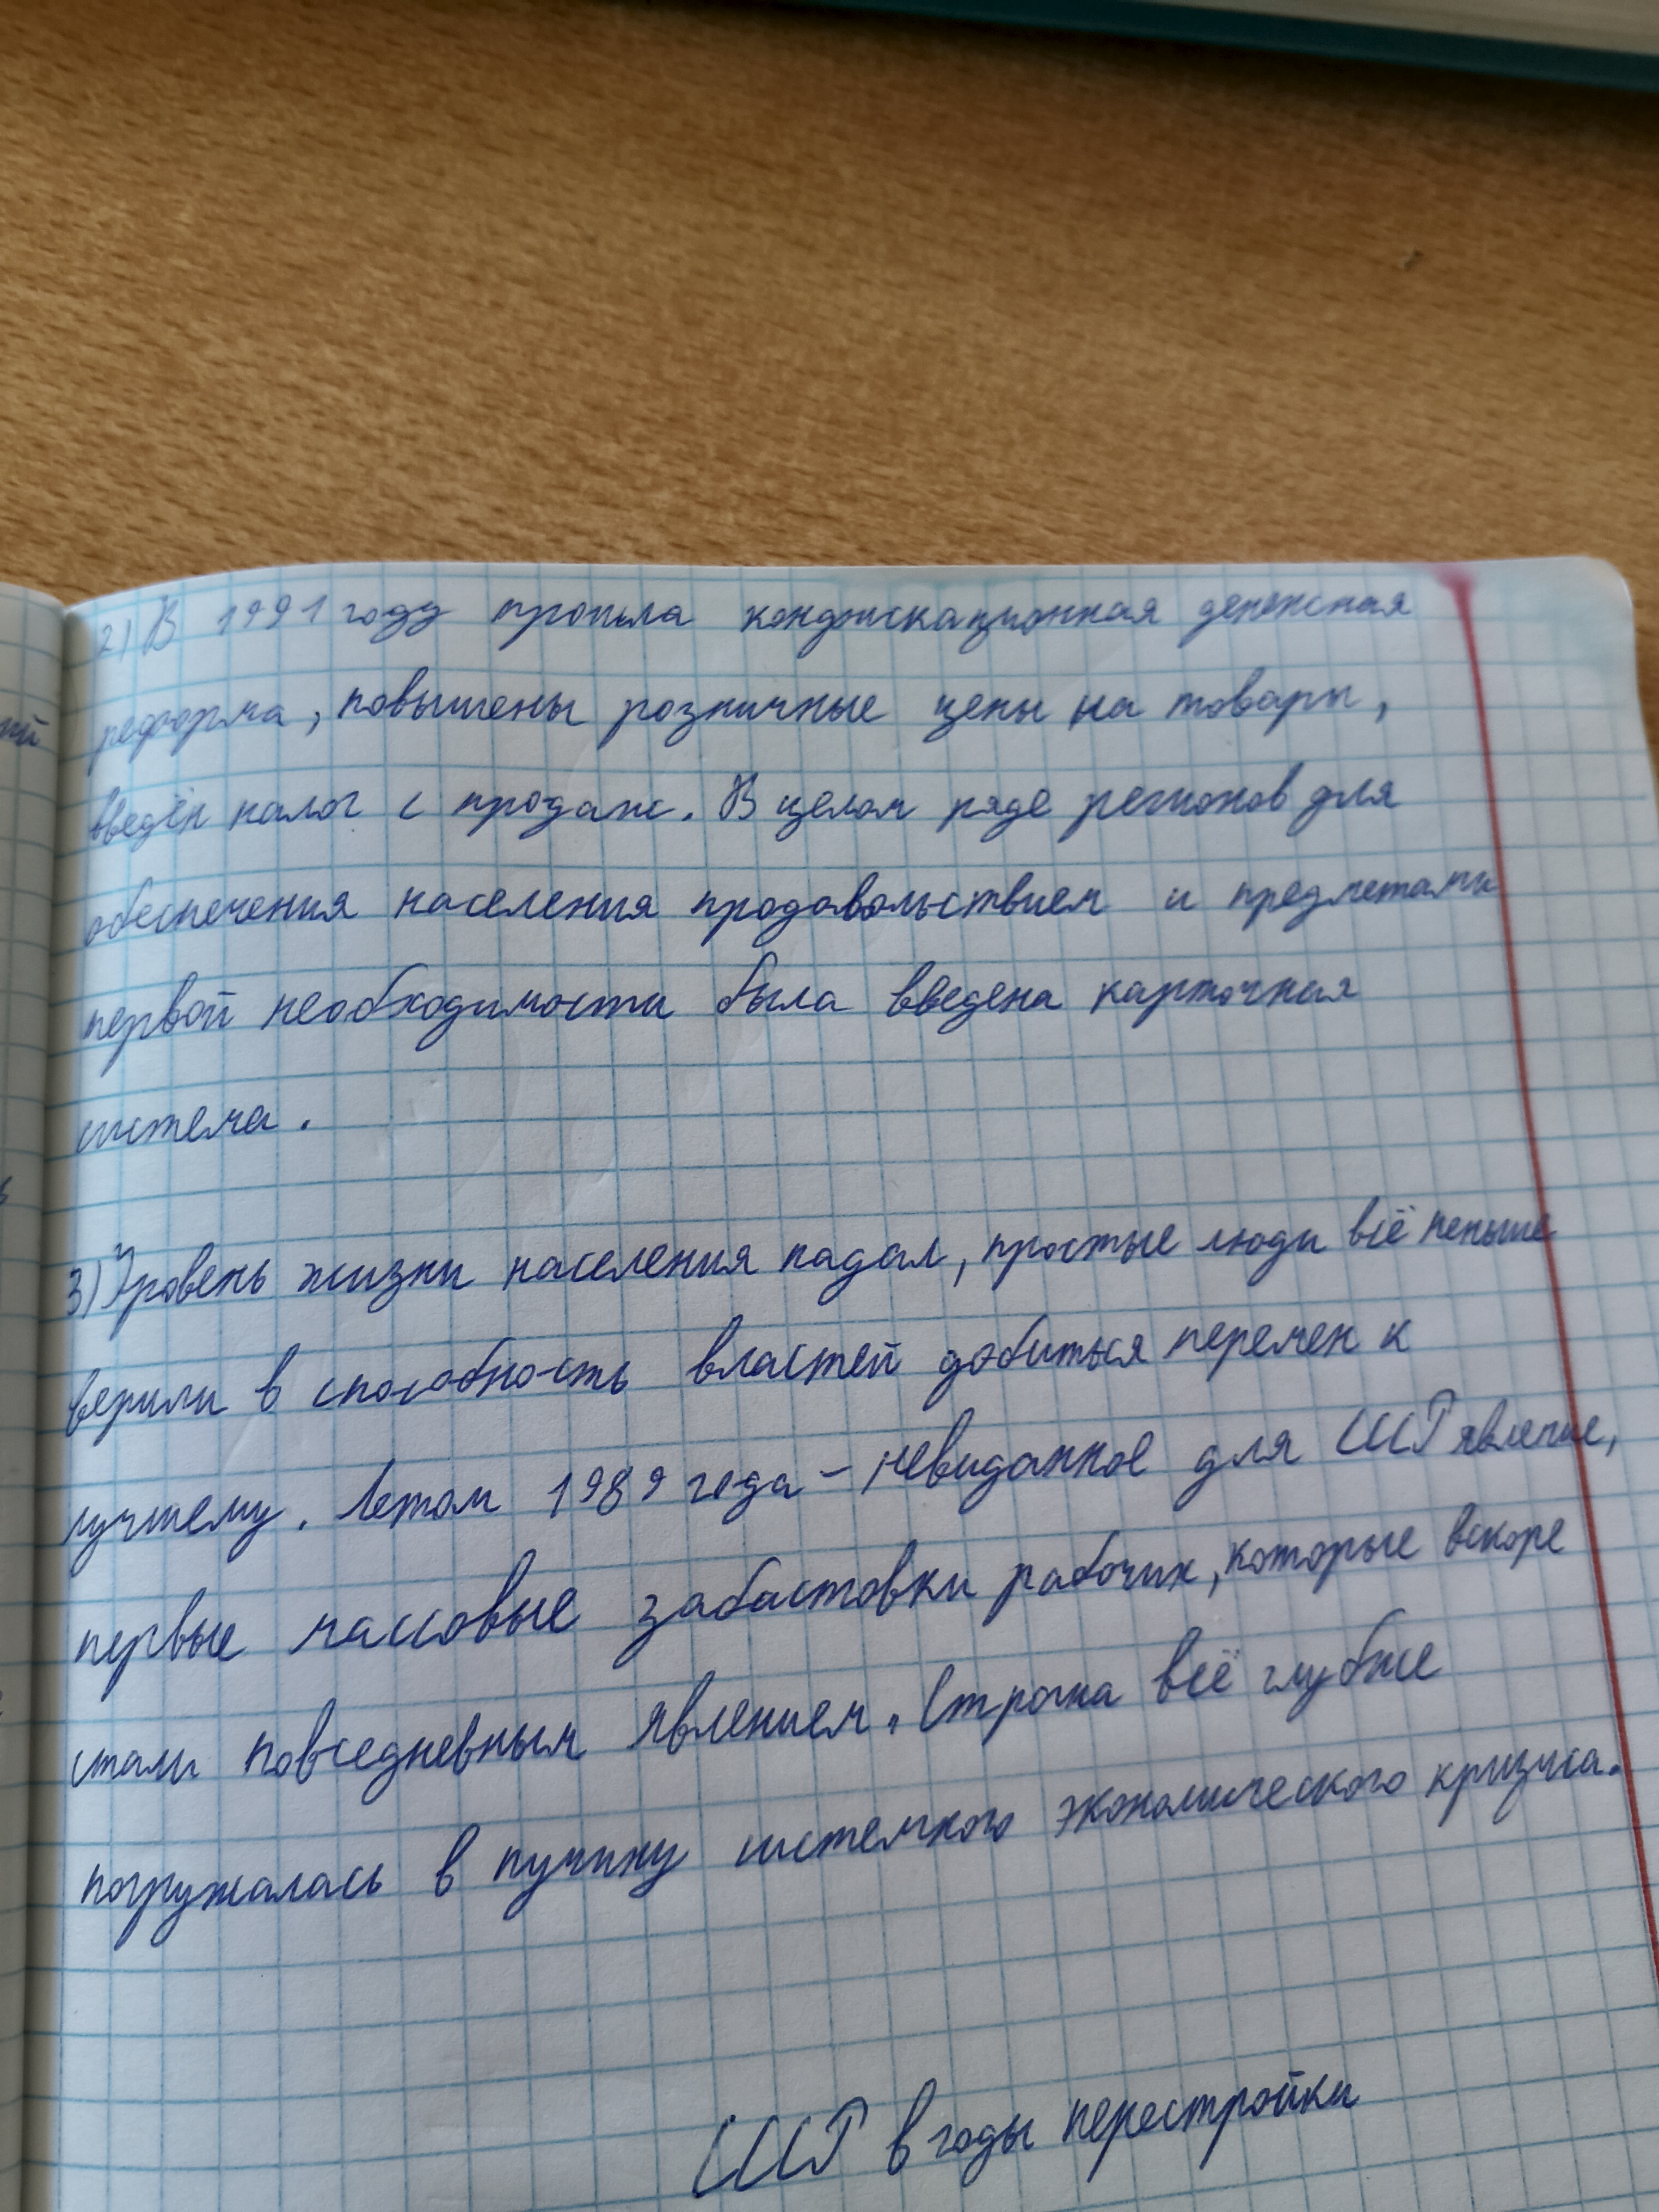 2) В 1991 году прошла конфискационная денежная
реформа, повышены розничные цены на товары,
введён налог с продаж. В целом ряде регионов для
обеспечения населения продовольствием и предметами
первой необходимости была введена карточная
система.
3) Уровень жизни населения падал, простые люди всё меньше
верили в способность властей добиться перемен к
лучшему. Летом 1989 года – невиданное для СССР явление,
первые массовые забастовки рабочих, которые вскоре
стали повседневным явлением. Страна всё глубже
погружалась в пучину системного экономического кризиса.
СССР в годы перестройки